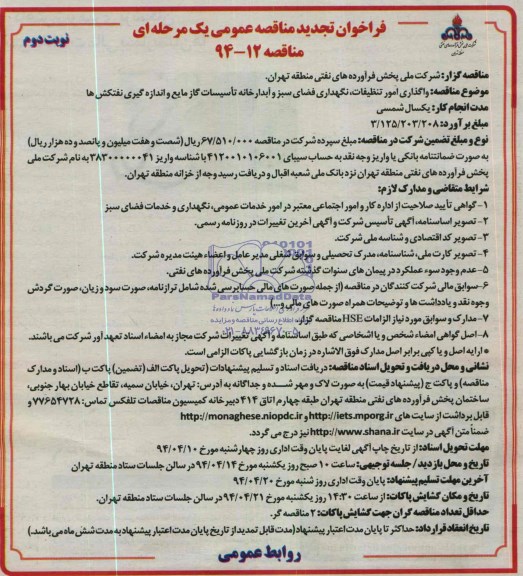 فراخوان تجدید مناقصه عمومی یک مرحله ای
مناقصه ۱۲-۹۴
نوبت دوم
مناقصه گزار: شرکت ملی پخش فرآورده های نفتی منطقه تهران.
موضوع مناقصه: واگذاری امور تنظیفات، نگهداری فضای سبز و آبدارخانه تأسیسات گاز مایع و اندازه گیری نفتکش ها
مدت انجام کار: یکسال شمسی
مبلغ برآورد: ۳/۱۲۵/۲۰۳/۲۰۸
نوع و مبلغ تضمین شرکت در مناقصه: مبلغ سپرده شرکت در مناقصه ۶۷/۵۱۰/۰۰۰ ریال (شصت و هفت میلیون و پانصد و ده هزار ریال)
به صورت ضمانتنامه بانکی یا واریز وجه نقد به حساب سیبای ۴۱۲۰۰۱۰۱۰۶۰۰۱ با شناسه واریز ۳۸۳۰۰۰۰۰۰۴۱ به نام شرکت ملی
پخش فرآورده های نفتی منطقه تهران نزد بانک ملی شعبه اقبال و دریافت رسید وجه از خزانه منطقه تهران.
شرایط متقاضی و مدارک لازم:
۱-گواهی تأیید صلاحیت از اداره کار و امور اجتماعی معتبر در امور خدمات عمومی، نگهداری و خدمات فضای سبز
۲- تصویر اساسنامه، آگهی تأسیس شرکت و آگهی آخرین تغییرات در روزنامه رسمی.
۳- تصویر کد اقتصادی و شناسه ملی شرکت.
۴- تصویر کارت ملی، شناسنامه، مدرک تحصیلی و سوابق شغلی مدیر عامل و اعضاء هیئت مدیره شرکت.
۵-عدم وجود سوء عملکرد در پیمان های سنوات گذشته شرکت ملی پخش فرآورده های نفتی.
۶-سوابق مالی شرکت کنندگان در مناقصه (از جمله صورت های مالی حسابرسی شده شامل ترازنامه، صورت سود و زیان، صورت گردش
وجوه نقد و یادداشت ها و توضیحات همراه صورت های مالی و...)
۷-مدارک و سوابق مورد نیاز الزامات HSE مناقصه گزار.
۸-اصل گواهی امضاء شخص و یا اشخاصی که طبق اساسنامه و آگهی تغییرات شرکت مجاز به امضاء اسناد تعهد آور شرکت می باشند.
* ارایه اصل و یا کپی برابر اصل مدارک فوق الاشاره در زمان بازگشایی پاکات الزامی است.
نشانی و محل دریافت و تحویل اسناد مناقصه: دریافت اسناد و تسلیم پیشنهادات (تحویل پاکت الف (تضمین) پاکت ب (اسناد و مدارک
مناقصه) و پاکت ج (پیشنهاد قیمت) به صورت لاک و مهر شده و جداگانه به آدرس: تهران، خیابان سمیه، تقاطع خیابان بهار جنوبی،
ساختمان پخش فرآورده های نفتی منطقه تهران طبقه چهارم اتاق ۴۱۴ دبیرخانه کمیسیون مناقصات تلفکس تماس: ۷۷۶۵۴۷۲۸ و
قابل برداشت از سایت های http://iets.mporg.ir و http://monaghese.niopdc.ir
ضمناً متن آگهی در سایت http://www.shana.ir نیز درج می گردد.
مهلت تحویل اسناد: از تاریخ چاپ آگهی لغایت پایان وقت اداری روز چهارشنبه مورخ ۹۴/۰۴/۱۰
تاریخ و محل بازدید/ جلسه توجیهی: ساعت ۱۰ صبح روز یکشنبه مورخ ۹۴/۰۴/۱۴ در سالن جلسات ستاد منطقه تهران
آخرین مهلت تسلیم پیشنهاد: پایان وقت اداری روز شنبه مورخ ۹۴/۰۴/۲۰
تاریخ و مکان گشایش پاکات: از ساعت ۱۴:۳۰ روز یکشنبه مورخ ۹۴/۰۴/۲۱ در سالن جلسات ستاد منطقه تهران.
حداقل تعداد مناقصه گران جهت گشایش پاکات: ۲ مناقصه گر.
تاریخ انعقاد قرارداد: حداکثر تا پایان مدت اعتبار پیشنهاد (مدت قابل تمدید از تاریخ پایان مدت اعتبار پیشنهاد به مدت شش ماه می باشد.)
روابط عمومی
ParsNamadData